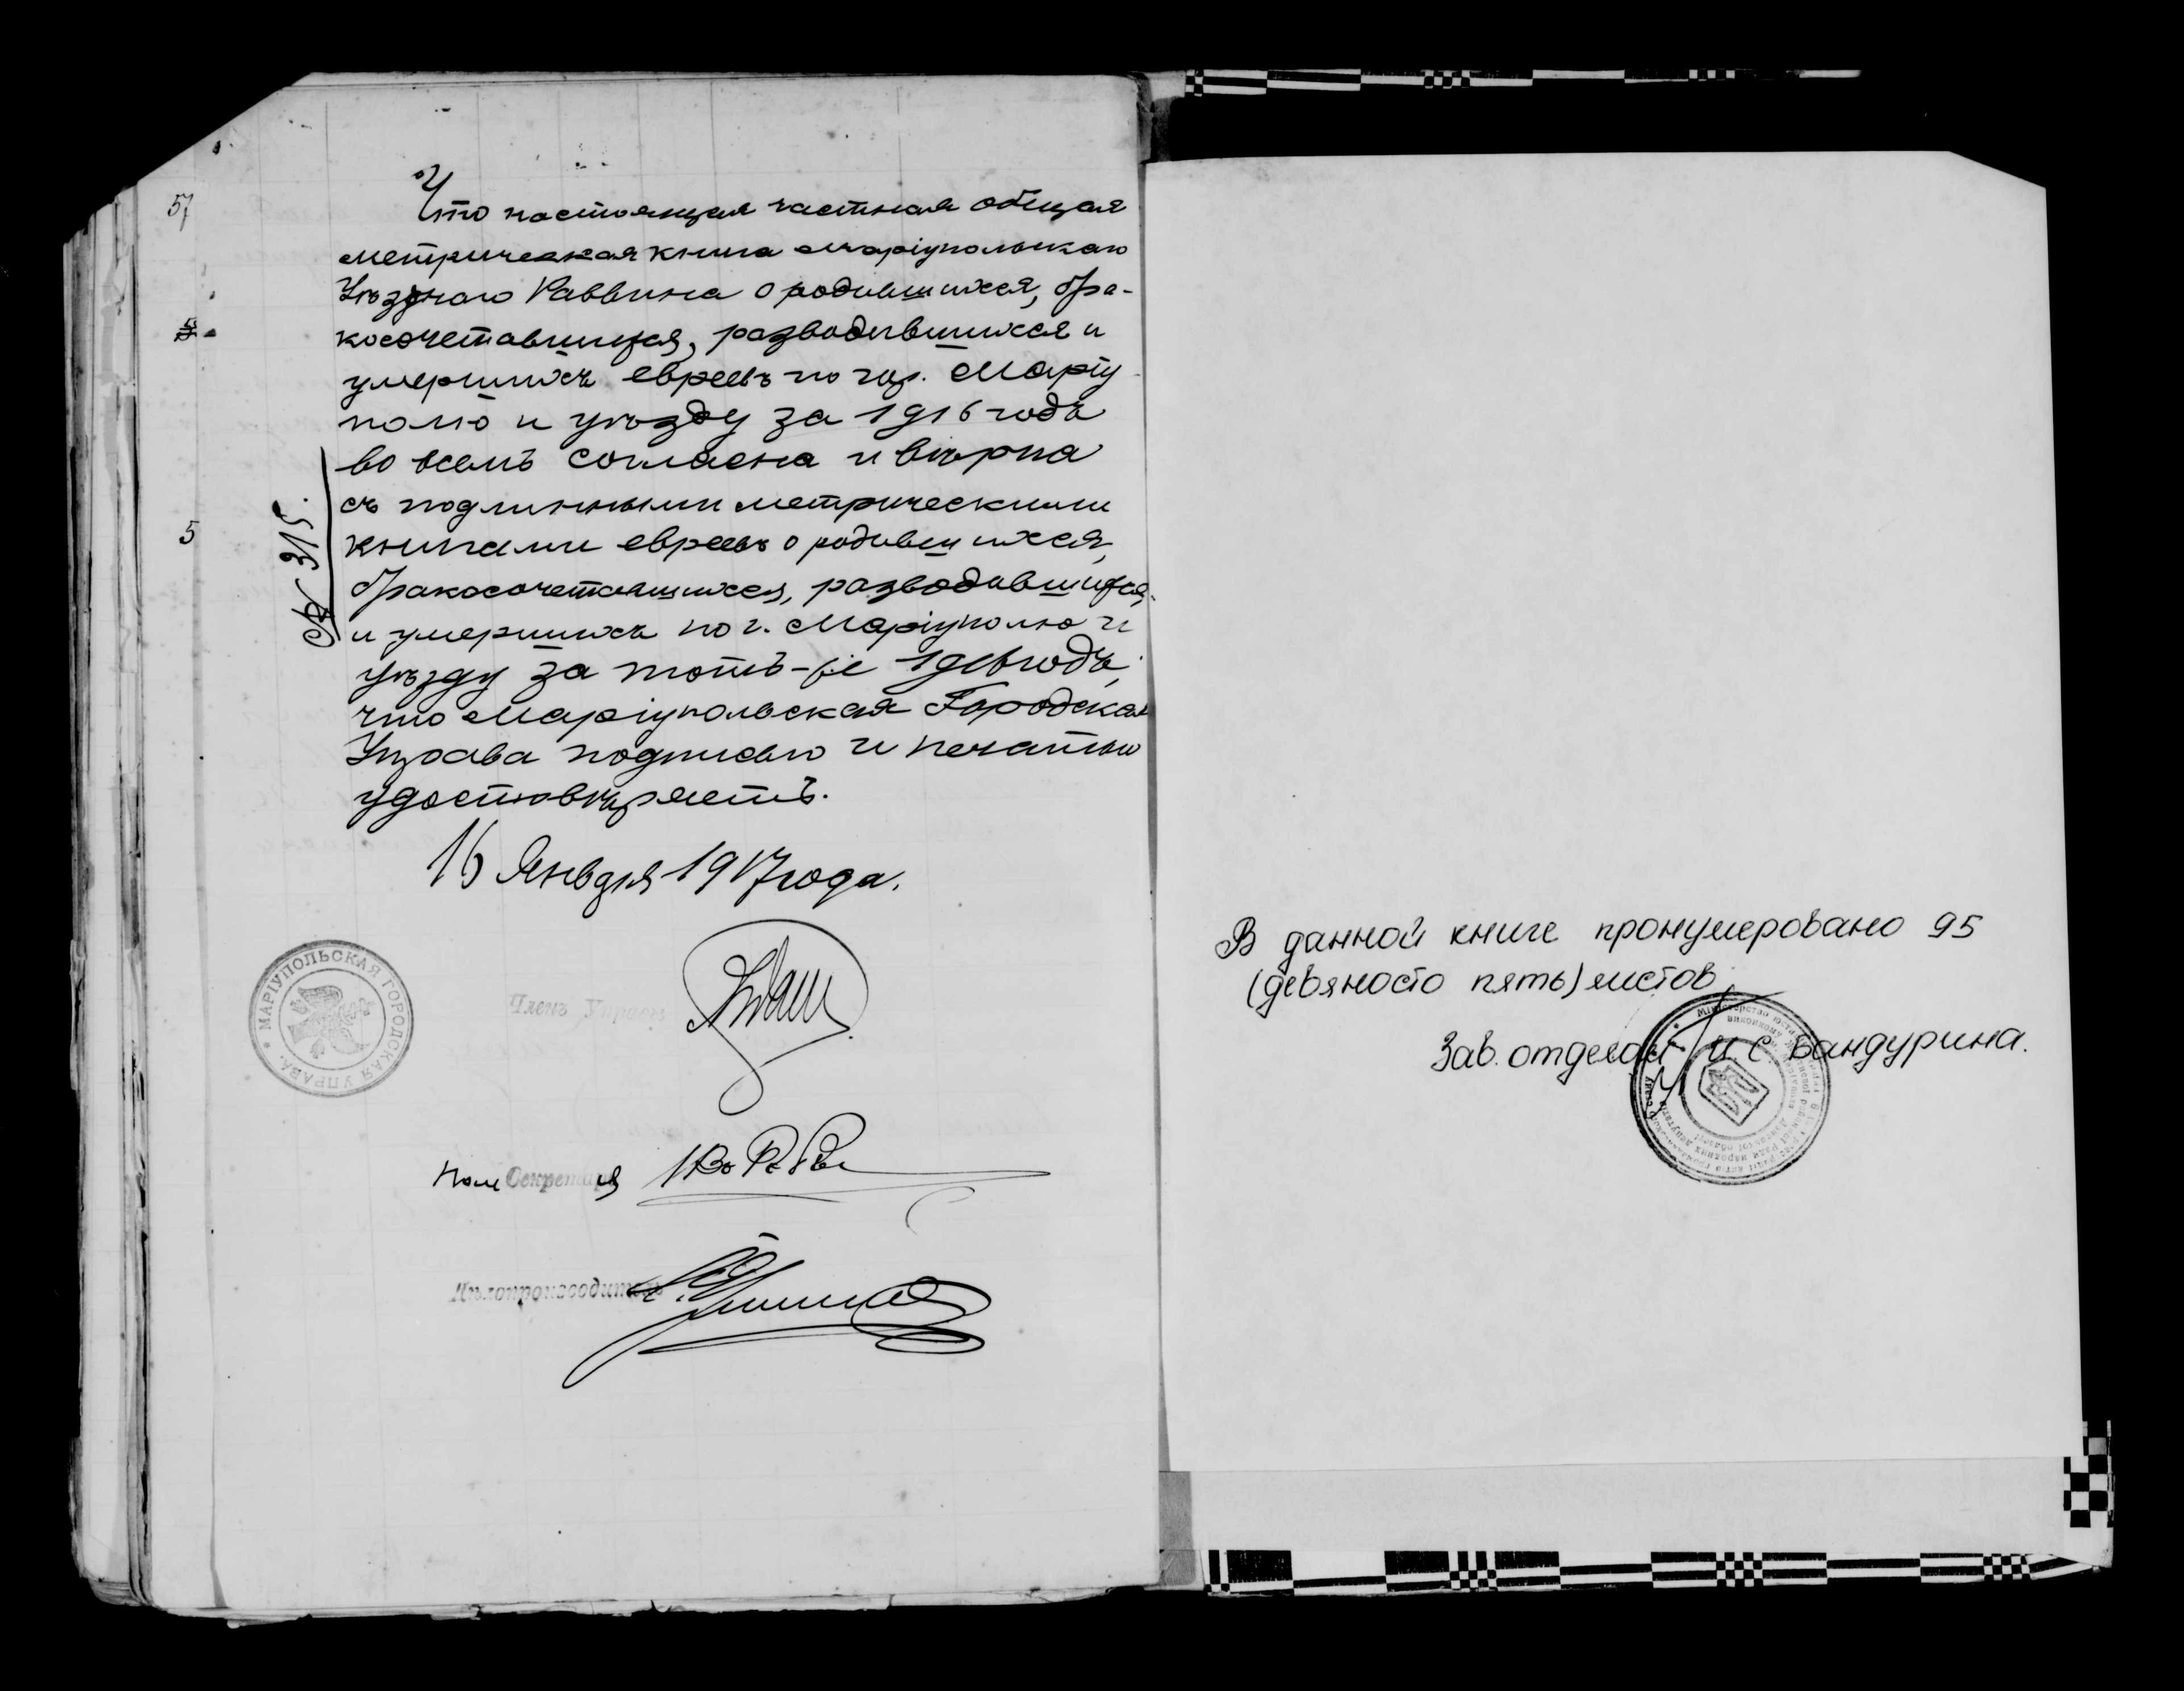 57
5
№ 315.
Что настоящая частная общая
метрическая книга Маріупольскаго
Уѣзднаго Раввина о родившихся, бра-
косочетавшихся, разводившихся и
умершихъ евреевъ по гор. Маріу
полю и уѣзду за 1916 годъ
во всемъ согласна и вѣрна
съ подлинными метрическими
книгами евреевъ о родившихся,
бракосочетавшихся, разводившихся,
и умершихъ по г. Маріуполю и
уѣзду за тотъ-же 1916 годъ,
что Маріупольская Городская
Управа подписью и печатью
удостовѣряетъ.
16 Января 1917 года.
МАРІУПОЛЬСКАЯ ГОРОДСКАЯ УПРАВА.
Членъ Управы
Пом Секретаря
Дѣлопроизводитель
В данной книге пронумеровано 95
(девяносто пять) листов
Зав. отделом И. С. Бандурина.